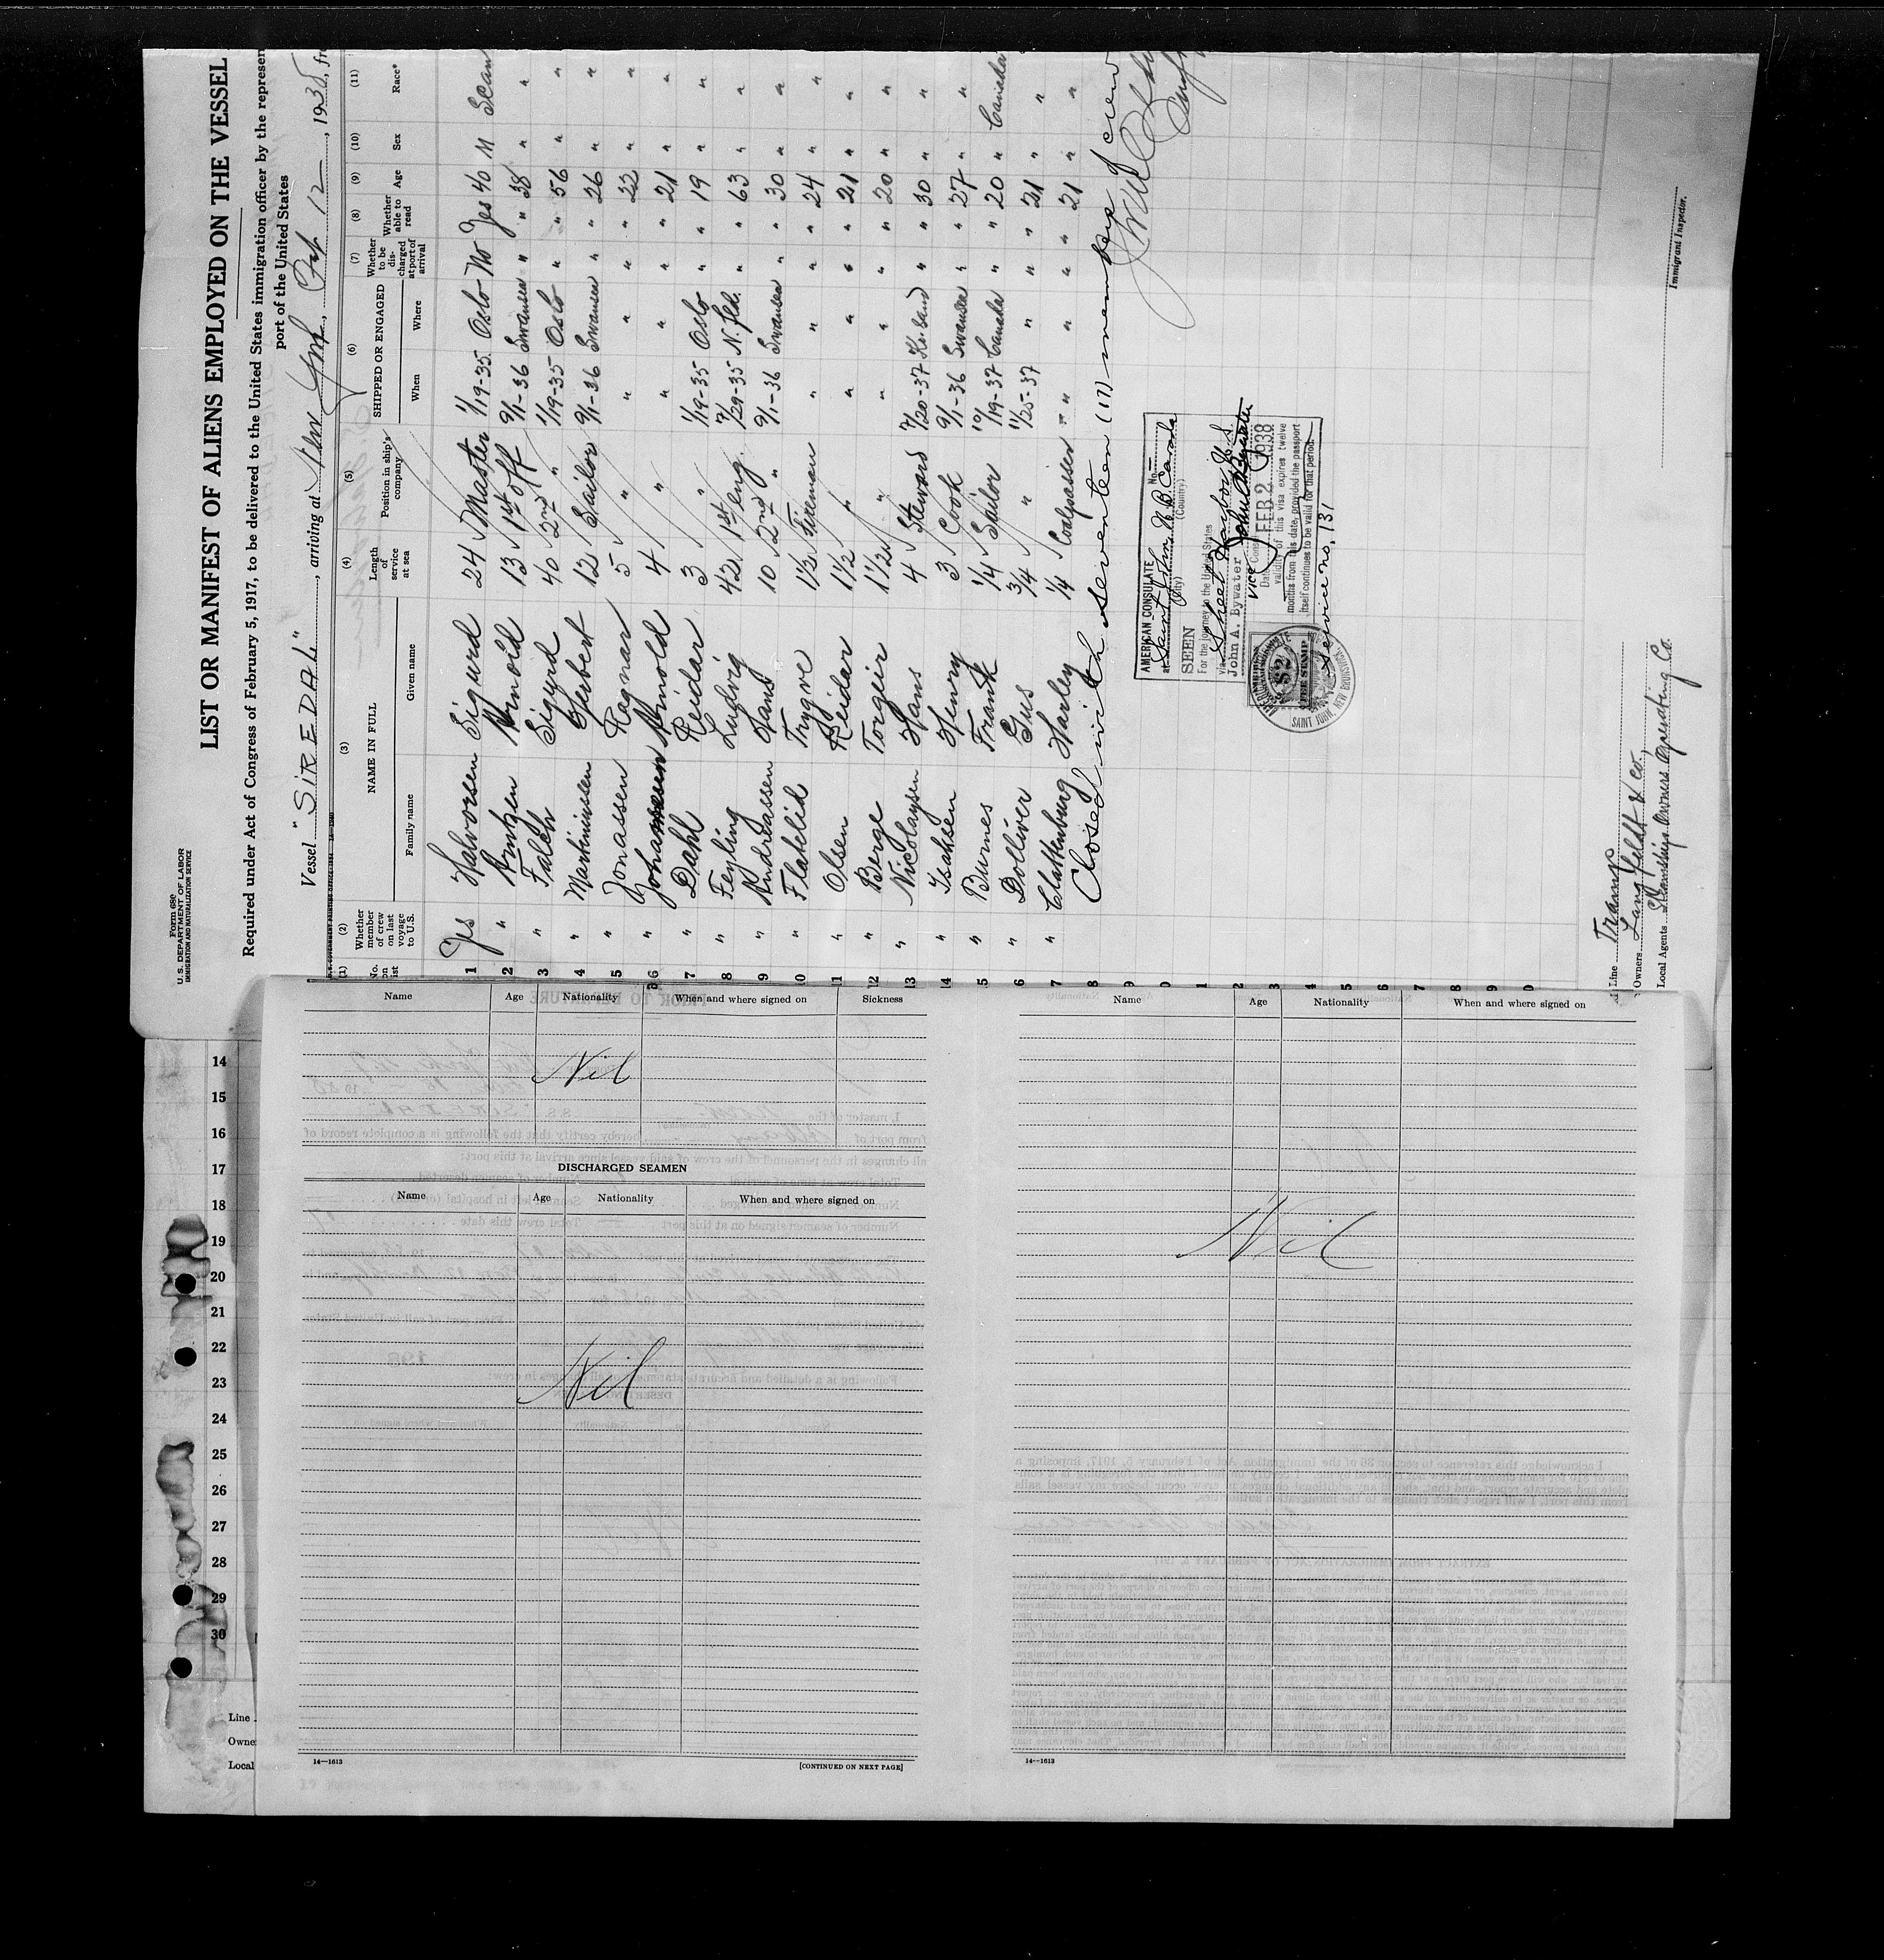 Form 680
U.S. DEPARTMENT OF LABOR
IMMIGRATION AND NATURALIZATION SERVICE
LIST OR MANIFEST OF ALIENS EMPLOYED ON THE VESSEL
Required under Act of Congress of February 5, 1917, to be delivered to the United States immigration officer by the represen
port of the United States
Vessel "SIREDAL", arriving at New York, 12, 1938, fr
(1) (2) (3) (4) (5) (6) (7) (8) (9) (10) (11)
No. on list Whether member of crew on last voyage to U.S. NAME IN FULL Family name Given name Length of service at sea Position in ship's company SHIPPED OR ENGAGED When Where Whether to be discharged at port of arrival Whether able to read Age Sex Race*
1 Yes Halvorsen Sigurd 24 Master 1/19-35 Oslo No Yes 40 M Scan
2 " Arntzen Arnold 13 1st off 9/1-36 Swansea " " 38 " "
3 " Falch Sigurd 40 2nd " 1/19-35 Oslo " " 56 " "
4 " Martiniussen Herbert 12 Sailor 9/1-36 Swansea " " 26 " "
5 " Jonassen Ragnar 5 " " " " " 22 " "
6 " Johannessen Arnold 4 " " " " " 21 " "
7 " Dahl Reidar 3 " 1/19-35 Oslo " " 19 " "
8 " Feyling Ludvig 42 1st eng. 7/29-35 N. fld. " " 63 " "
9 " Andreassen Hans 10 2nd " 9/1-36 Swansea " " 30 " "
10 " Flatelid Trygve 1 1/2 Fireman " " " " 24 " "
11 " Olsen Reidar 1 1/2 " " " " " 21 " "
12 " Berge Torgeir 1 1/2 " " " " " 20 " "
13 " Nicolaysen Hans 4 Steward 7/20-37 Kr.sand " " 30 " "
14 " Isaksen Henry 3 Cook 9/1-36 Swansea " " 27 " "
15 " Burnes Frank 1/4 Sailor 10/19-37 Canada " " 20 " Canada
16 " Dolliver Gus 3/4 " 11/25-37 " " " 21 " "
17 " Clattenburg Harley 1/4 Coalpasser " " " " 21 " "
Closed with seventeen (17) members of crew
AMERICAN CONSULATE No.
at Saint John, N.B. Canada
(City) (Country)
SEEN
For the journey to the United States
via Sheet Harbour N.S
John A. Bywater
Vice Consul
Date FEB 2 1938
validity of this visa expires twelve
months from this date, provided the passport
itself continues to be valid for that period.
Service no. 131
$2
FEE STAMP
SAINT JOHN, NEW BRUNSWICK
Line Tramp
Owners
Local Agents Steamship Owners Operating Co.
Immigrant Inspector.
14
15
16
17
18
19
20
21
22
23
24
25
26
27
28
29
30
Line
Owne
Local
Name Age Nationality When and where signed on Sickness
Nil
DISCHARGED SEAMEN
Name Age Nationality When and where signed on
Nil
14—1613 [CONTINUED ON NEXT PAGE]
Name Age Nationality When and where signed on
Nil
14—1613